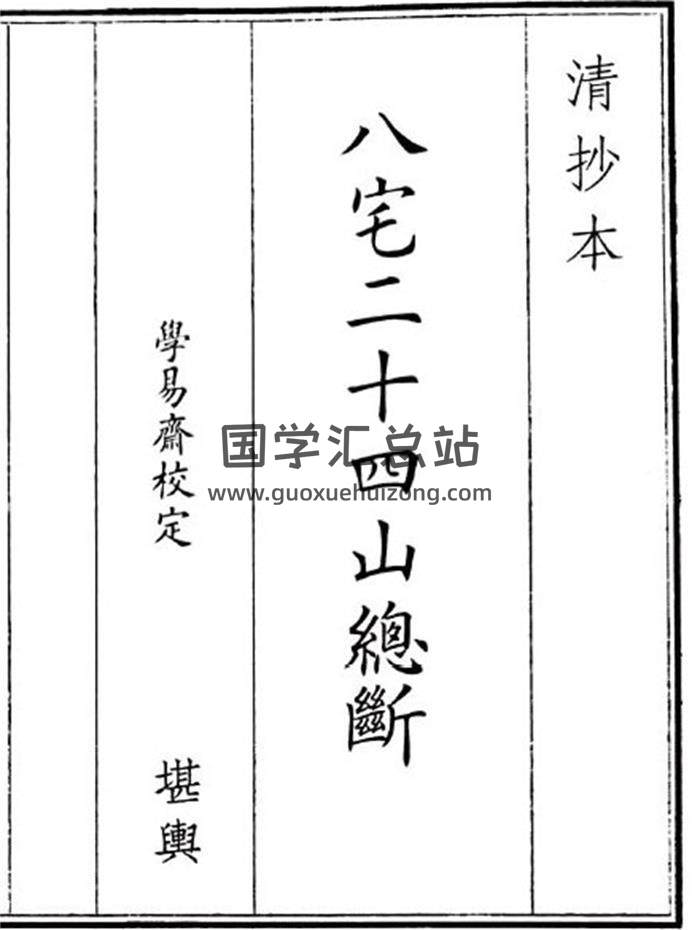 清抄本
八宅二十四山總斷
學易齋校定
堪輿
国学汇总站
www.guoxuehuizong.com